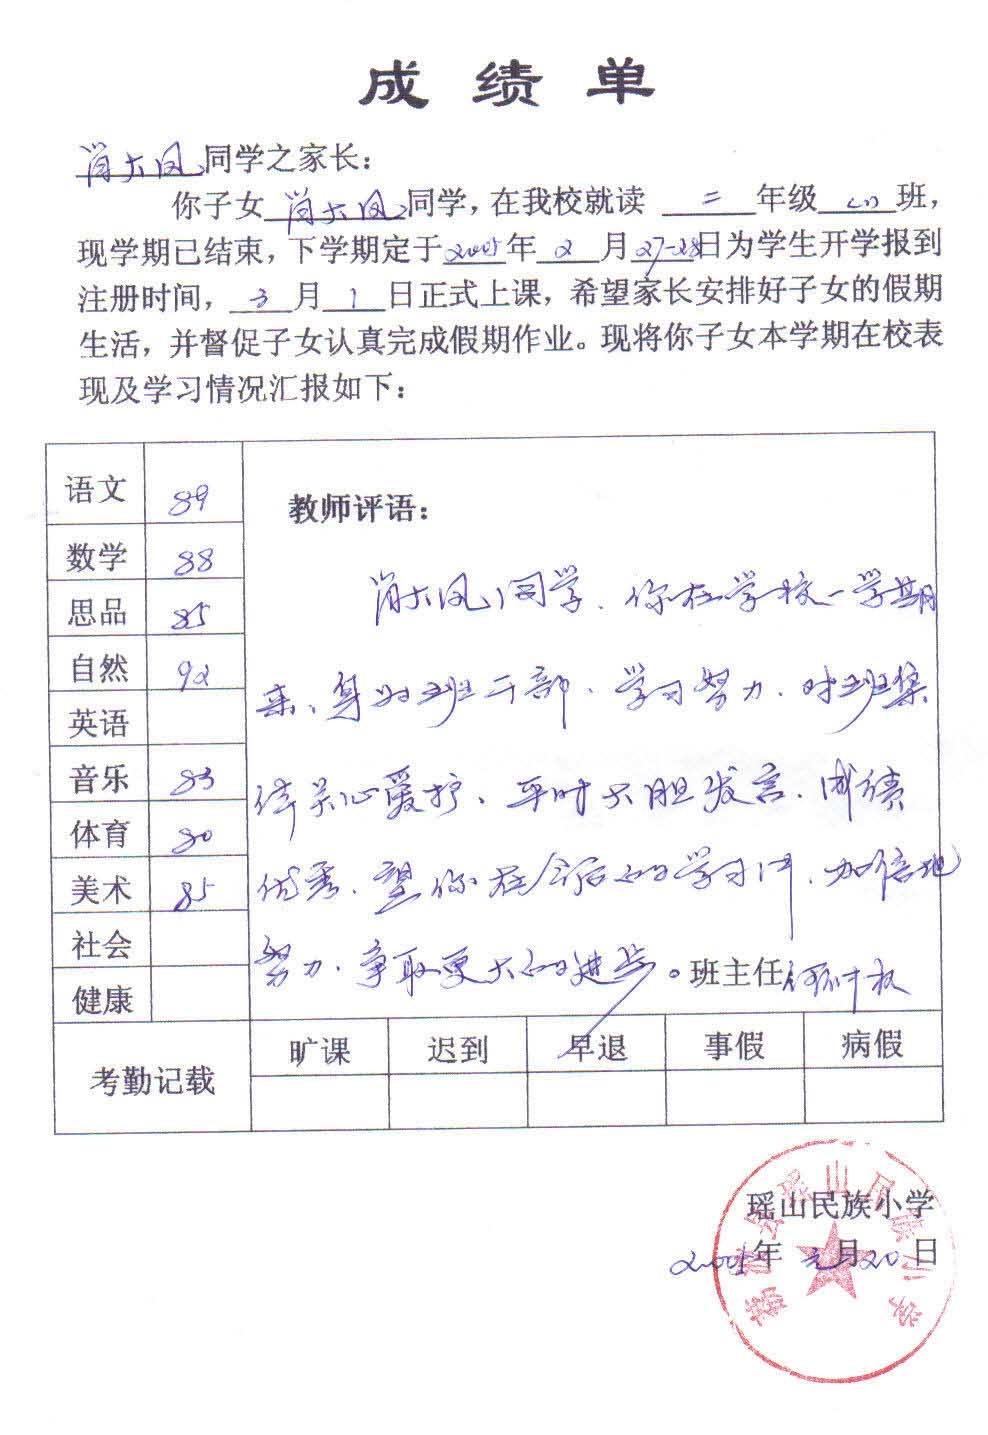 成绩单
肖大凤同学之家长：
你子女肖大凤同学，在我校就读 二年级(四)班，
现学期已结束，下学期定于2005年2月27-28日为学生开学报到
注册时间，3月1日正式上课，希望家长安排好子女的假期
生活，并督促子女认真完成假期作业。现将你子女本学期在校表
现及学习情况汇报如下：
语文 89
数学 88
思品 85
自然 92
英语
音乐 83
体育 80
美术 85
社会
健康
教师评语：
肖大凤同学、你在学校一学期
来、身为班干部、学习努力、对班集
体关心爱护、平时大胆发言、成绩
优秀、望你在今后的学习中、加倍地
努力、争取更大的进步。班主任
考勤记载 旷课 迟到 早退 事假 病假
瑶山民族小学
2005年元月20日
瑶山民族小学